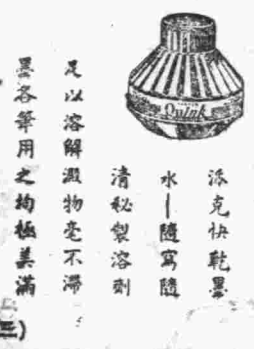 Quink
派克快乾墨
水—隨寫隨
清秘製溶劑
足以溶解澱物毫不滯
墨各筆用之均極美滿
三)